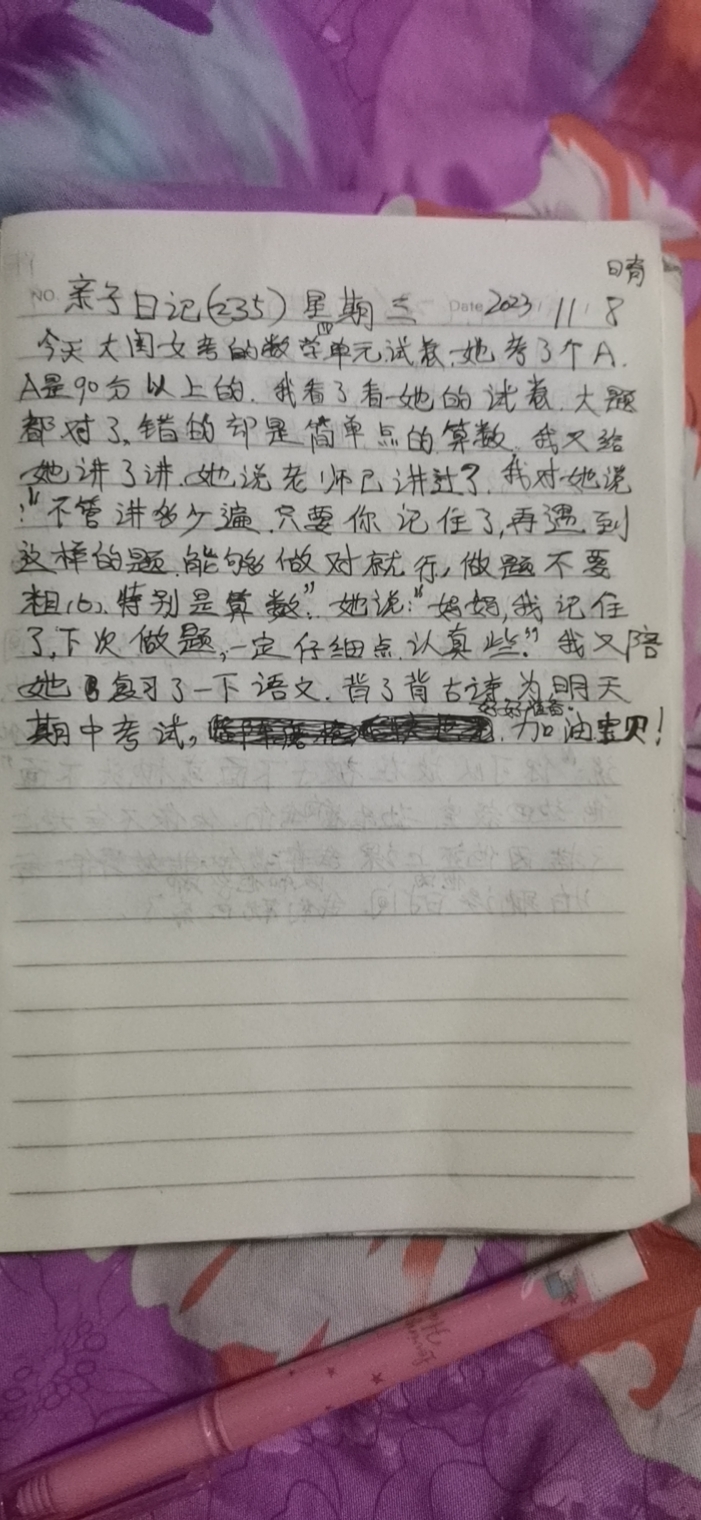 晴
NO. 亲子日记(235) 星期三 Date 2023 11 8
今天大闺女考的数学单元试卷,她考了个A.
A是90分以上的.我看了看她的试卷.大题
都对了,错的却是简单点的算数,我又给
她讲了讲.她说老师已讲过了.我对她说
:“不管讲多少遍.只要你记住了,再遇到
这样的题.能够做对就行,做题不要
粗心、特别是算数”.她说:“妈妈,我记住
了,下次做题,一定仔细点.认真些.”我又陪
她复习了一下语文.背了背古诗.为明天
期中考试,好好准备.加油宝贝!